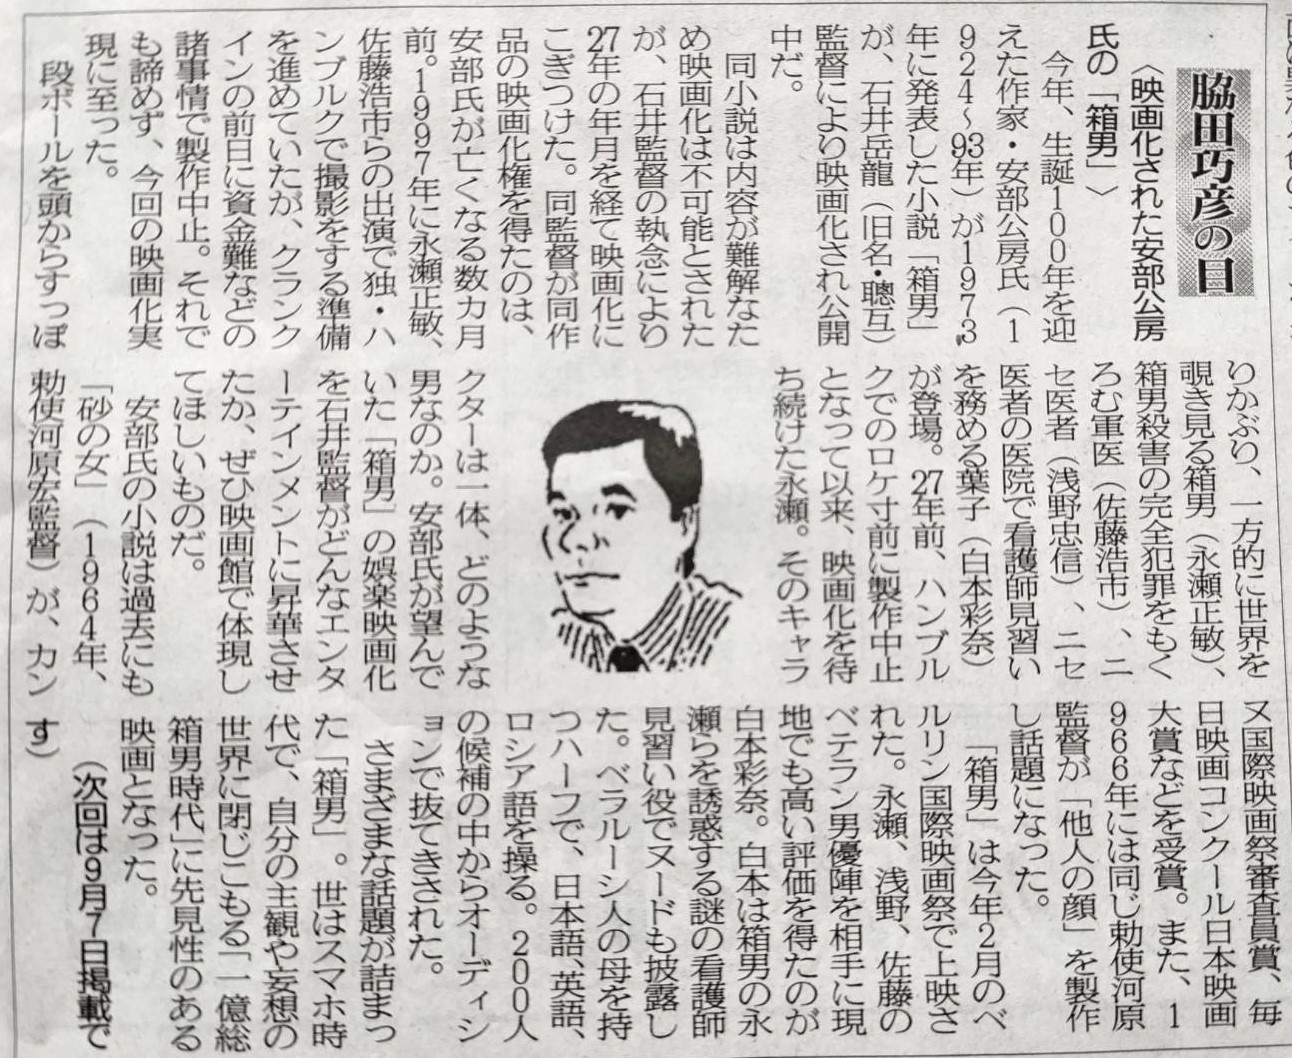 脇田巧彦の目
〈映画化された安部公房
氏の「箱男」〉
今年、生誕100年を迎
えた作家・安部公房氏（1
924～93年）が1973
年に発表した小説「箱男」
が、石井岳龍（旧名・聰亙）
監督により映画化され公開
中だ。
同小説は内容が難解なた
め映画化は不可能とされた
が、石井監督の執念により
27年の年月を経て映画化に
こぎつけた。同監督が同作
品の映画化権を得たのは、
安部氏が亡くなる数カ月
前。1997年に永瀬正敏、
佐藤浩市らの出演で独・ハ
ンブルクで撮影をする準備
を進めていたが、クランク
インの前日に資金難などの
諸事情で製作中止。それで
も諦めず、今回の映画化実
現に至った。
段ボールを頭からすっぽ
りかぶり、一方的に世界を
覗き見る箱男（永瀬正敏）、
箱男殺害の完全犯罪をもく
ろむ軍医（佐藤浩市）、ニ
セ医者（浅野忠信）、ニセ
医者の医院で看護師見習い
を務める葉子（白本彩奈）
が登場。27年前、ハンブル
クでのロケ寸前に製作中止
となって以来、映画化を待
ち続けた永瀬。そのキャラ
クターは一体、どのような
男なのか。安部氏が望んで
いた「箱男」の娯楽映画化
を石井監督がどんなエンタ
ーテインメントに昇華させ
たか、ぜひ映画館で体現し
てほしいものだ。
安部氏の小説は過去にも
「砂の女」（1964年、
勅使河原宏監督）が、カン
ヌ国際映画祭審査員賞、毎
日映画コンクール日本映画
大賞などを受賞。また、1
966年には同じ勅使河原
監督が「他人の顔」を製作
し話題になった。
「箱男」は今年2月のベ
ルリン国際映画祭で上映さ
れた。永瀬、浅野、佐藤の
ベテラン男優陣を相手に現
地でも高い評価を得たのが
白本彩奈。白本は箱男の永
瀬らを誘惑する謎の看護師
見習い役でヌードも披露し
た。ベラルーシ人の母を持
つハーフで、日本語、英語、
ロシア語を操る。200人
の候補の中からオーディシ
ョンで抜てきされた。
さまざまな話題が詰まっ
た「箱男」。世はスマホ時
代で、自分の主観や妄想の
世界に閉じこもる「一億総
箱男時代」に先見性のある
映画となった。
（次回は9月7日掲載で
す）